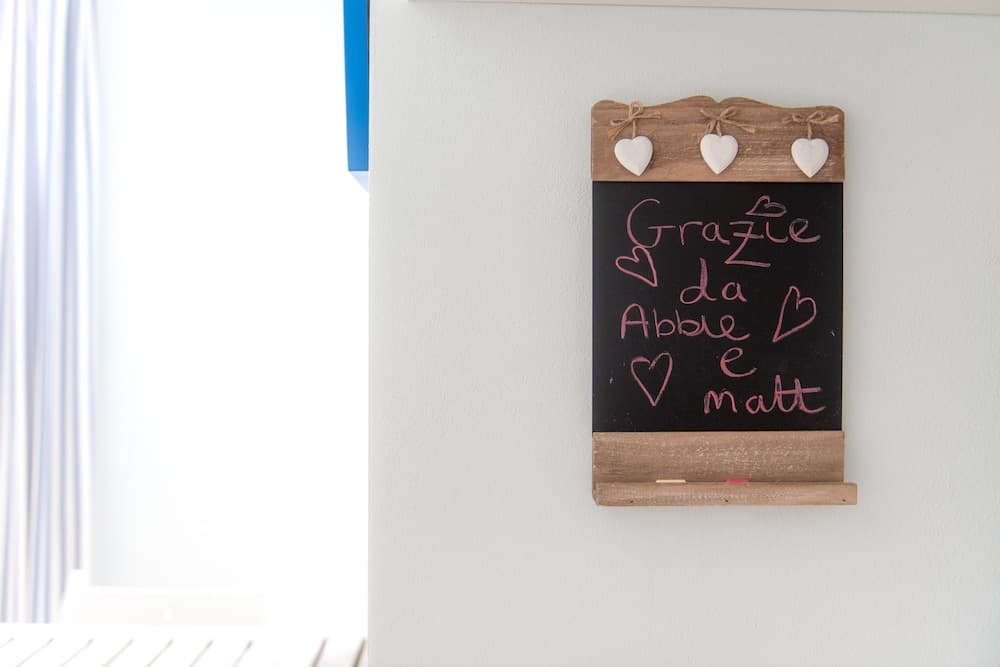 Grazie
da
Abbie
e
Matt